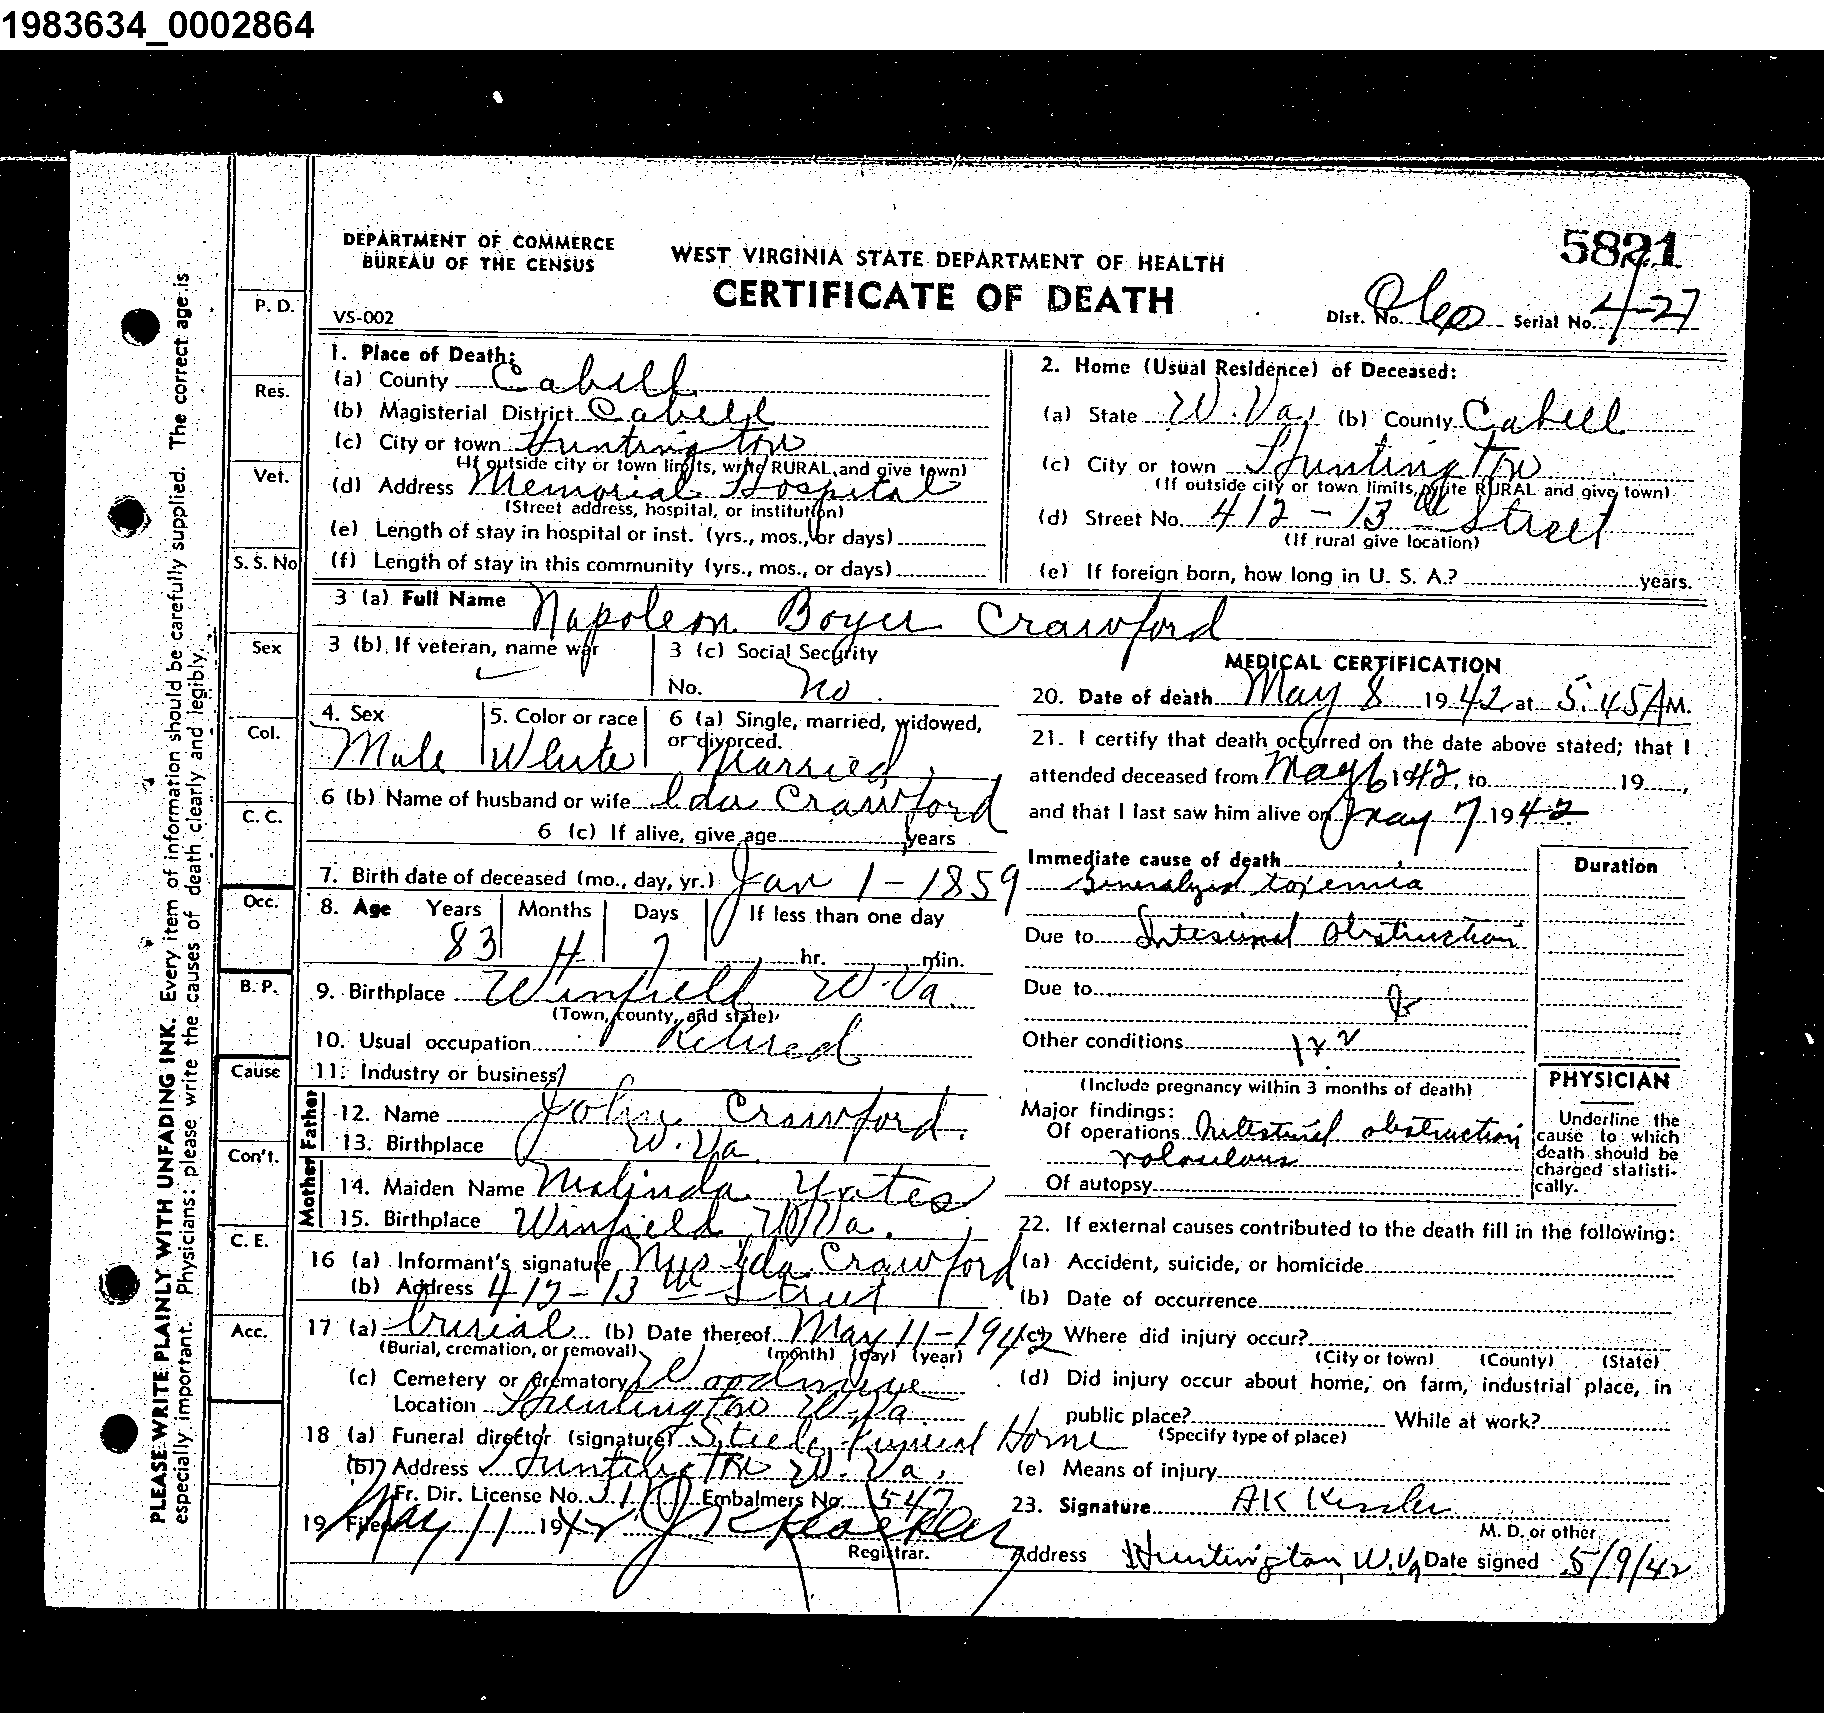 1983634_0002864
DEPARTMENT OF COMMERCE
BUREAU OF THE CENSUS
WEST VIRGINIA STATE DEPARTMENT OF HEALTH
CERTIFICATE OF DEATH
5821
VS-002
Dist. No. Serial No. 427
PLEASE WRITE PLAINLY WITH UNFADING INK. Every item of information should be carefully supplied. The correct age is
especially important. Physicians: please write the causes of death clearly and legibly.
P. D.
Res.
Vet.
S. S. No
Sex
Col.
C. C.
Occ.
B. P.
Cause
Con't.
C. E.
Acc.
1. Place of Death:
(a) County Cabell
(b) Magisterial District Cabell
(c) City or town Huntington
(If outside city or town limits, write RURAL and give town)
(d) Address Memorial Hospital
(Street address, hospital, or institution)
(e) Length of stay in hospital or inst. (yrs., mos., or days)
(f) Length of stay in this community (yrs., mos., or days)
2. Home (Usual Residence) of Deceased:
(a) State W. Va. (b) County Cabell
(c) City or town Huntington
(If outside city or town limits, write RURAL and give town)
(d) Street No. 412 - 13th Street
(If rural give location)
(e) If foreign born, how long in U. S. A.? years.
3 (a) Full Name Napoleon Boyer Crawford
3 (b) If veteran, name war
3 (c) Social Security
No. No.
4. Sex
Male
5. Color or race
White
6 (a) Single, married, widowed,
or divorced.
Married
6 (b) Name of husband or wife Ida Crawford
6 (c) If alive, give age years
7. Birth date of deceased (mo., day, yr.) Jan 1 - 1859
8. Age Years Months Days If less than one day
83 4 7 hr. min.
9. Birthplace Winfield W. Va.
(Town, county, and state)
10. Usual occupation Retired
11. Industry or business
Father
12. Name John Crawford.
13. Birthplace W. Va.
Mother
14. Maiden Name Malinda Yates
15. Birthplace Winfield W. Va.
16 (a) Informant's signature Mrs Ida Crawford
(b) Address 412 - 13th Street
17 (a) burial (b) Date thereof May 11 - 1942
(Burial, cremation, or removal) (month) (day) (year)
(c) Cemetery or crematory Woodmere
Location Huntington W. Va.
18 (a) Funeral director (signature) Steele Funeral Home
(b) Address Huntington W. Va.
Fr. Dir. License No. Embalmers No. 547
19 Filed May 11 1942
Registrar.
MEDICAL CERTIFICATION
20. Date of death May 8 1942 at 5:45 A M.
21. I certify that death occurred on the date above stated; that I
attended deceased from May 6 1942, to 19 ,
and that I last saw him alive on May 7 1942
Immediate cause of death
Generalized toxemia
Due to Intestinal Obstruction
Due to
Other conditions 122
(Include pregnancy within 3 months of death)
Major findings:
Of operations Intestinal obstruction
volvulous
Of autopsy
Duration
PHYSICIAN
Underline the
cause to which
death should be
charged statisti-
cally.
22. If external causes contributed to the death fill in the following:
(a) Accident, suicide, or homicide
(b) Date of occurrence
(c) Where did injury occur?
(City or town) (County) (State)
(d) Did injury occur about home, on farm, industrial place, in
public place? While at work?
(Specify type of place)
(e) Means of injury
23. Signature AK Kessler
M. D. or other
Address Huntington, W. Va Date signed 5/9/42